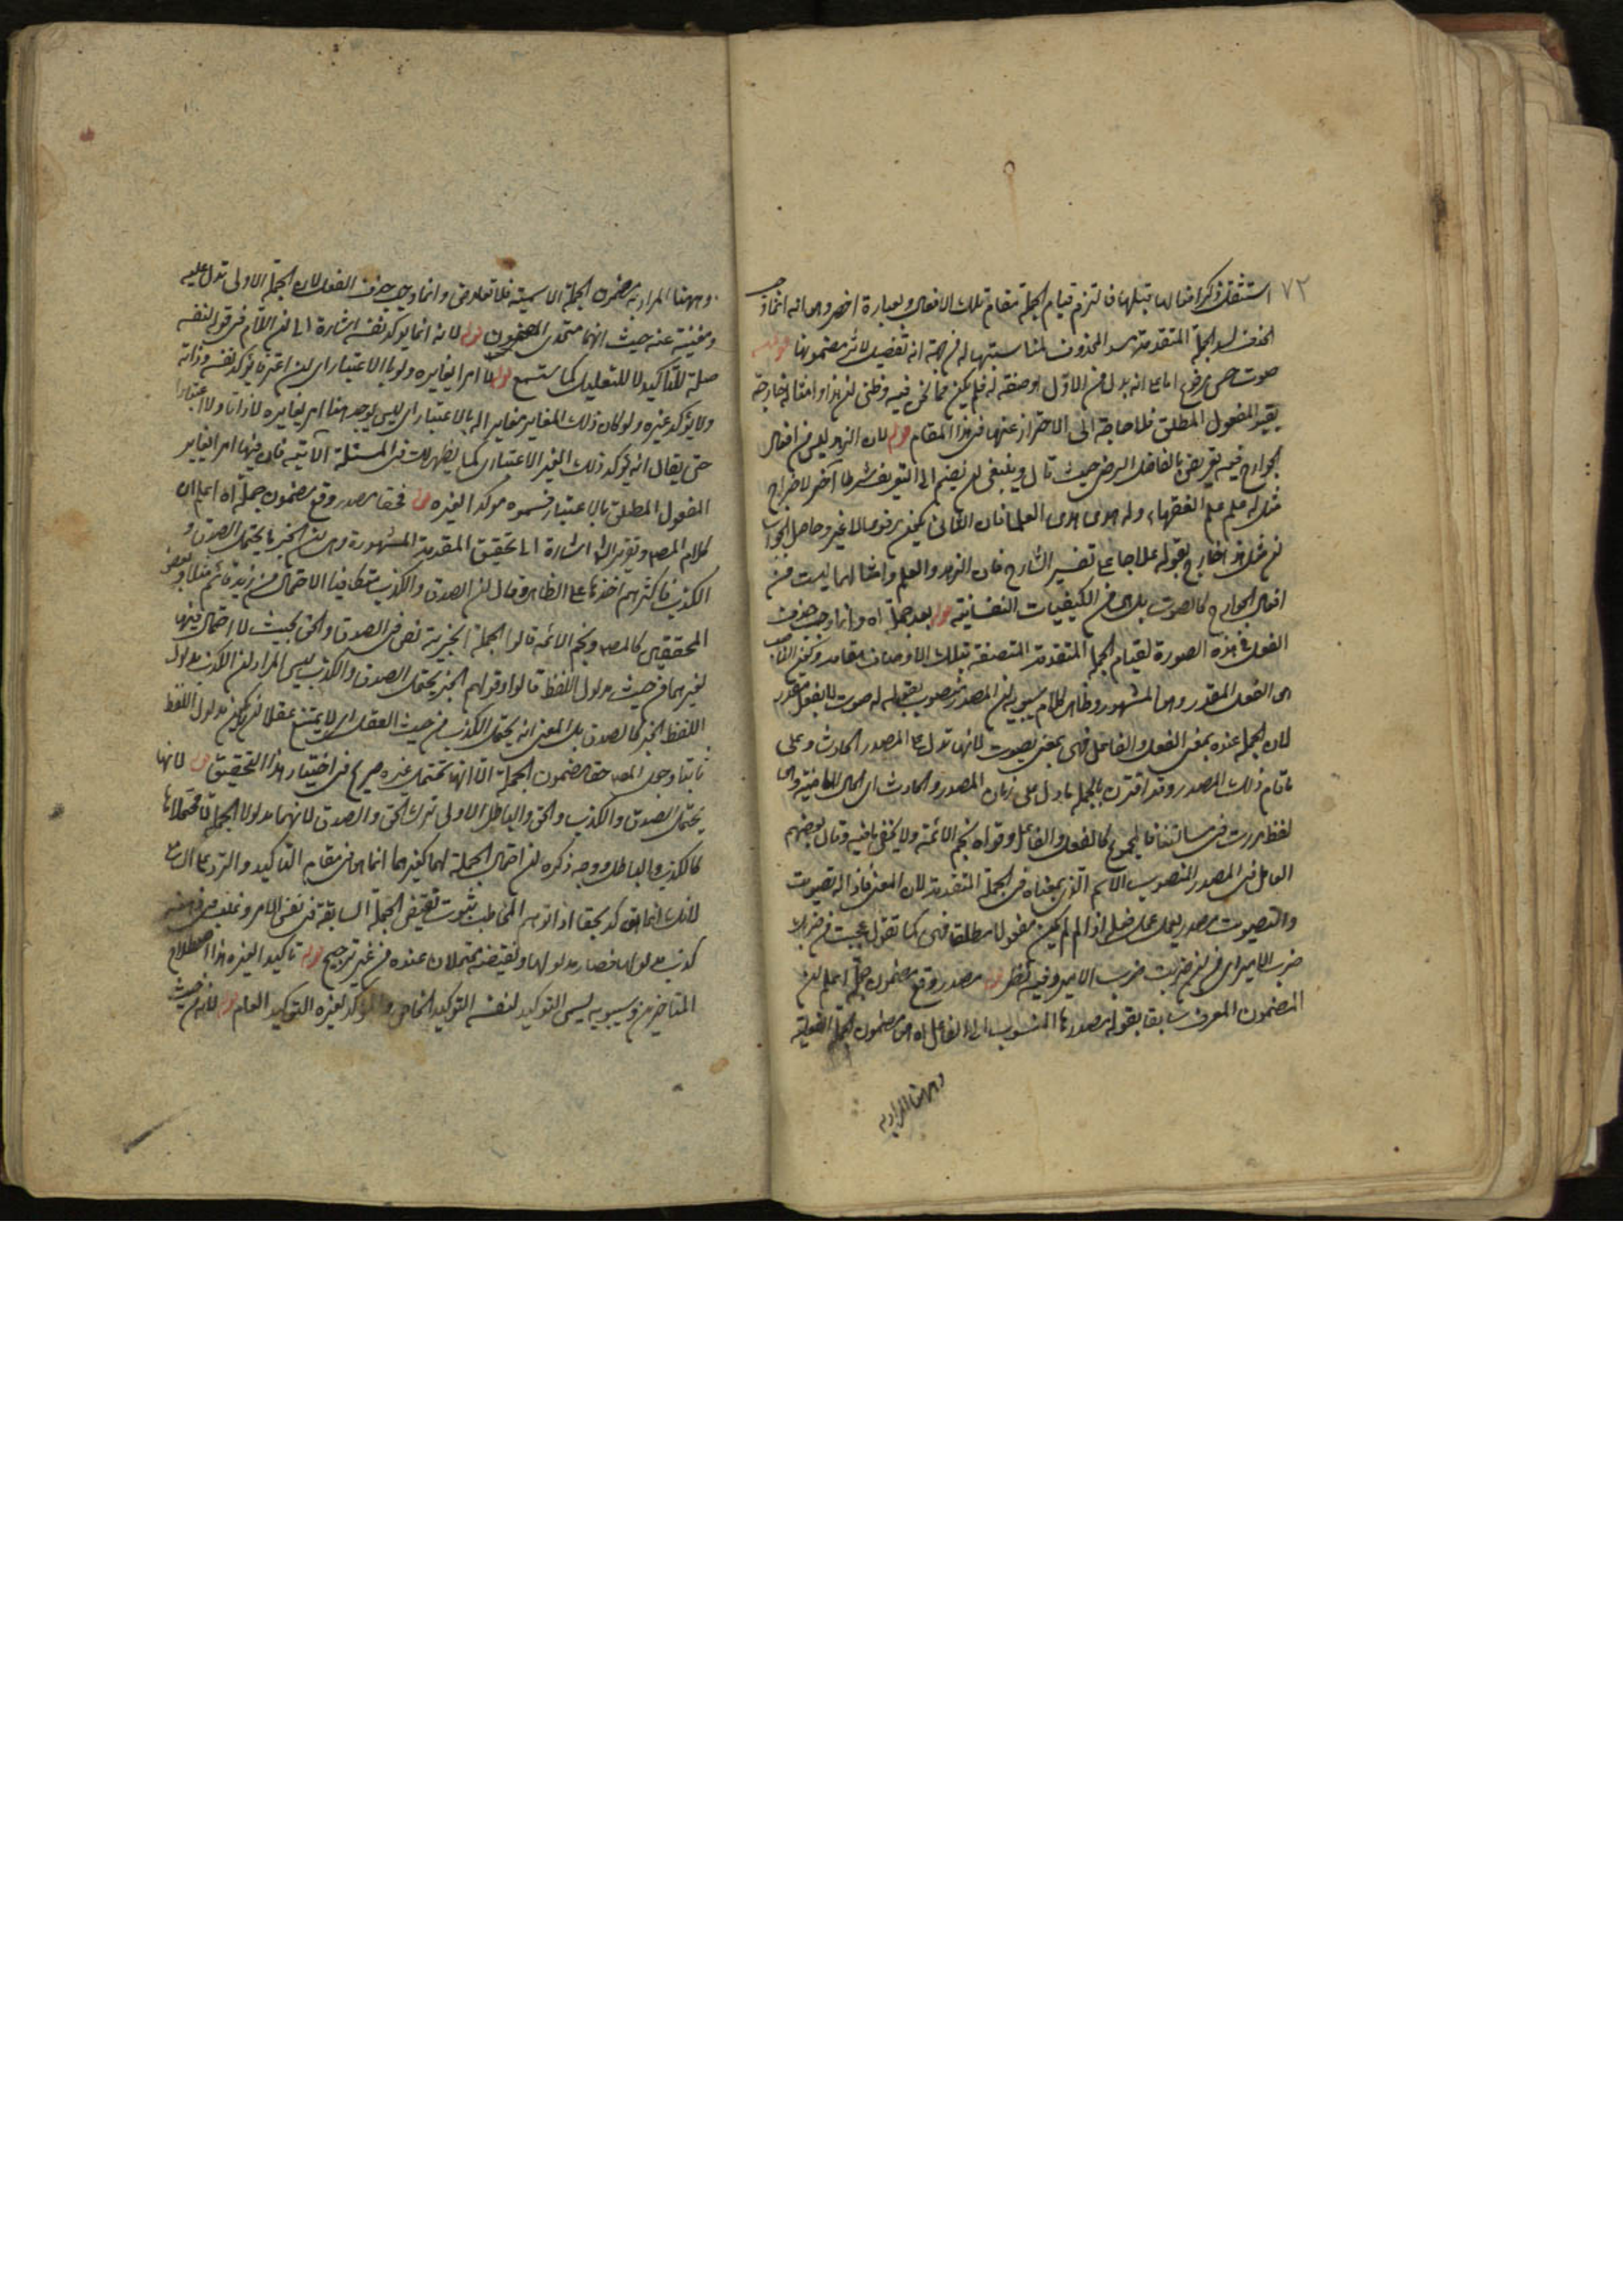 ٧٢
استثقل ذكر افعالها قبلها فالتزم قيام الجملة مقام تلك الافعال وبعبارة اخصر وهى انه انما وجب
الحذف لسد الجملة المتقدمة مسد المحذوف لمناسبتها له من جهة انه تفصيل لاثر مضمونها قوله
صوت حسن برفع اما على انه بدل من الاول او صفة له فلم يكن مما نحن فيه وظنى ان هذا وامثاله خارجة
بقيد المفعول المطلق فلا حاجة الى الاحتراز عنها فى هذا المقام قوله لان الزهد ليس من افعال
الجوارح فيه تعريض بالفاضل الرضى حيث قال وينبغى ان يضم الى التعريف شرط آخر لاخراج
مثل له علم علم الفقهاء وله هدى هدى العلماء فان الثانى يكون مرفوعا لا غير وحاصل الجواب
ان مثل هذا خارج بقوله علاجا على تفسير الشارح فان الزهد والعلم وامثالهما ليست من
افعال الجوارح كالصوت بل هى من الكيفيات النفسانية قوله بعد جملة اه وانما وجب حذف
الفعل فى هذه الصورة لقيام الجملة المتقدمة المتصفة بتلك الاوصاف مقامه وكون الناصب
هو الفعل المقدر وهو المشهور وظاهر كلام سيبويه ان المصدر منصوب بقوله له صوت لا بفعل مقدر
لان الجملة عنده بمعنى الفعل والفاعل فهى بمعنى يصوت لانها تدل على المصدر الحادث وعلى
ما قام ذلك المصدر وقد اقترن بالجملة ما دل على زمان المصدر والحادث اى الحال الماضية وهى
لفظ مررت فى مسألتنا فالمجموع كالفعل والفاعل وقواه نجم الائمة ولا يخفى ما فيه وقال بعضهم
العامل فى المصدر المنصوب الاسم الذى بمعناه فى الجملة المتقدمة لان المعنى فاذا له تصويت
والتصويت مصدر يعمل عمل فعله اذا لم يكن مفعولا مطلقا فهى كما تقول عجبت من ضربك
ضرب الامير اى من ان ضربت ضرب الامير وفيه نظر قوله مصدر وقع مضمون جملة اعلم ان
المضمون المعرف سابقا بقوله مصدرها المنسوب الى الفاعل اه هو مضمون الجملة الفعلية
وههنا المراد به
وههنا المراد به مضمون الجملة الاسمية فلا تعارض وانما وجب حذف الفعل لان الجملة الاولى تدل عليه
ومغنية عنه حيث انهما متحدى المضمون قوله لانه انما يؤكد نفسه اشارة الى ان اللام فى قوله لنفسه
صلة للتأكيد لا للتعليل كما ستسمع قوله لا امرا يغايره ولو بالاعتبار اى ان اعترفا يؤكد نفسه وذاته
ولا يؤكد غيره ولو كان ذلك المغاير مغايرا له بالاعتبار اى ليس يوجد هنا امر يغايره لا ذاتا ولا اعتبارا
حتى يقال انه يؤكد ذلك الغير الاعتبارى كما يظهر لك فى المسئلة الآتية فان فيها امرا يغاير
المفعول المطلق بالاعتبار فسموه مؤكدا لغيره قوله فحقا مصدر وقع مضمون جملة اه اعلم ان
كلام المصـ وتقرير الشـ اشارة الى تحقيق المقدمة المشهورة وهى ان الخبر ما يحتمل الصدق و
الكذب فاكثرهم اخذها على الظاهر وقال ان الصدق والكذب متكافئا الاحتمال من زيد قائم مثلا وبعض
المحققين كالمصـ ونجم الائمة قالوا الجملة الخبرية نص فى الصدق والحق بحيث لا احتمال فيها
لغيرهما من حيث مدلول اللفظ قالوا وقولهم الخبر يحتمل الصدق والكذب ليس المراد ان الكذب مدلول
اللفظ الخبر كالصدق بل المعنى انه يحتمل الكذب من حيث العقل اى لا يمتنع عقلا ان لا يكون مدلول اللفظ
ثابتا وجعل المصـ حقا مضمون الجملة التى انها تحتمل غيره صريح فى اختيار هذا التحقيق قوله لانها
يحتمل الصدق والكذب والحق والباطل الاولى ترك الحق والصدق لانهما مدلولا الجملة لا محتملاها
كالكذب والباطل ووجه ذكره ان احتمال الجملة لهما كغيرهما انما هو فى مقام التأكيد والتردد على ان ما
لانك انما تؤكد بحقا اذا توهم المخاطب ثبوت نقيض الجملة السابقة فى نفس الامر وغلب فى ذهنه
كذب مدلولها فصار مدلولها ونقيضه محتملان عنده من غير ترجيح قوله تأكيدا لغيره هذا اصطلاح
المتأخرين وسيبويه يسمى التوكيد لنفسه التوكيد الخاص والمؤكد لغيره التوكيد العام قوله لانه من حيث